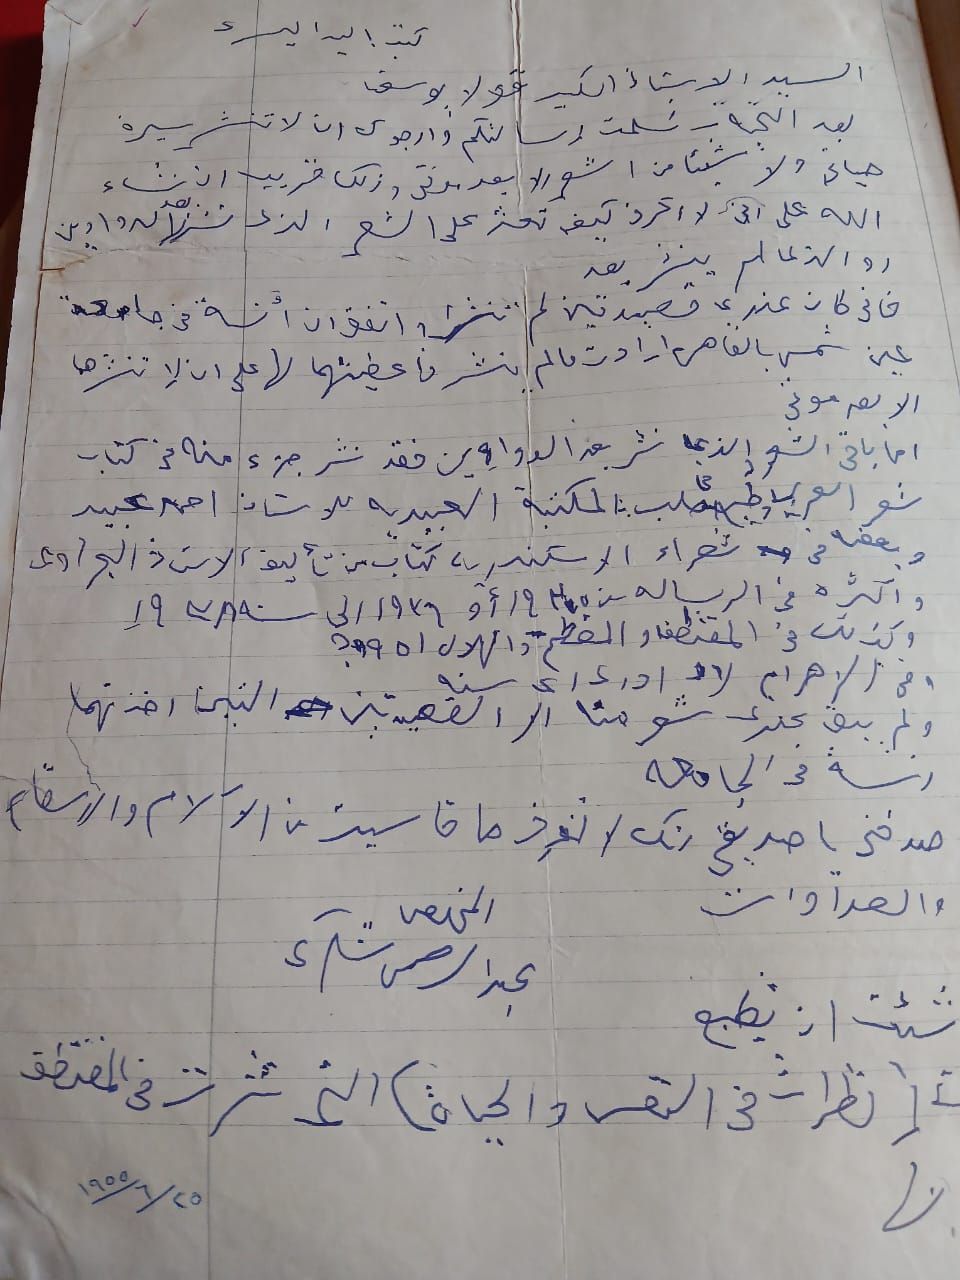 كتبت باليد اليسرى
السيد الاستاذ الكبير نقولا يوسف
بعد التحية تسلمت رسالتكم وارجوك ان لا تنشر سيرة
حياتى ولا شيئا من الشعر الا بعد موتى وذلك قريب ان شاء
الله على انى لا اعرف كيف تعثر على الشعر الذى نشر بعد الدواوين
او الذى لم ينشر بعد
فانى كان عندى قصيدتين لم تنشر واتفق ان أنسة فى جامعة
عين شمس بالقاهرة ارادت ما لم ينشر فاعطيتهما لها على ان لا تنشرها
الا بعد موتى
اما باقى الشعر الذى نشر بعد الدواوين فقد نشر جزء منه فى كتاب
شعراء العرب طبع حلب المكتبة العبيدية للاستاذ احمد عبيد
وبعضه فى شعراء الاسكندرية كتاب من تأليف الاستاذ البحراوى
واكثره فى الرسالة من أو ١٩٣٦ الى سنة
وكذلك فى المقتطف والمقطم والهلال
وفى الاهرام لا ادرى اى سنة
ولم يبق عندى شىء منه الا القصيدتين التى اخذتهما
انسة فى الجامعة
صدقنى يا صديقى انك لا تعرف ما قاسيت من الآلام والاسقام
والعداوات
المخلص
عبد الرحمن شكرى
شئت ان تطبع
(نظرات فى النفس والحياة) التى نشرت فى المقتطف
٢٥/٦/١٩٥٥